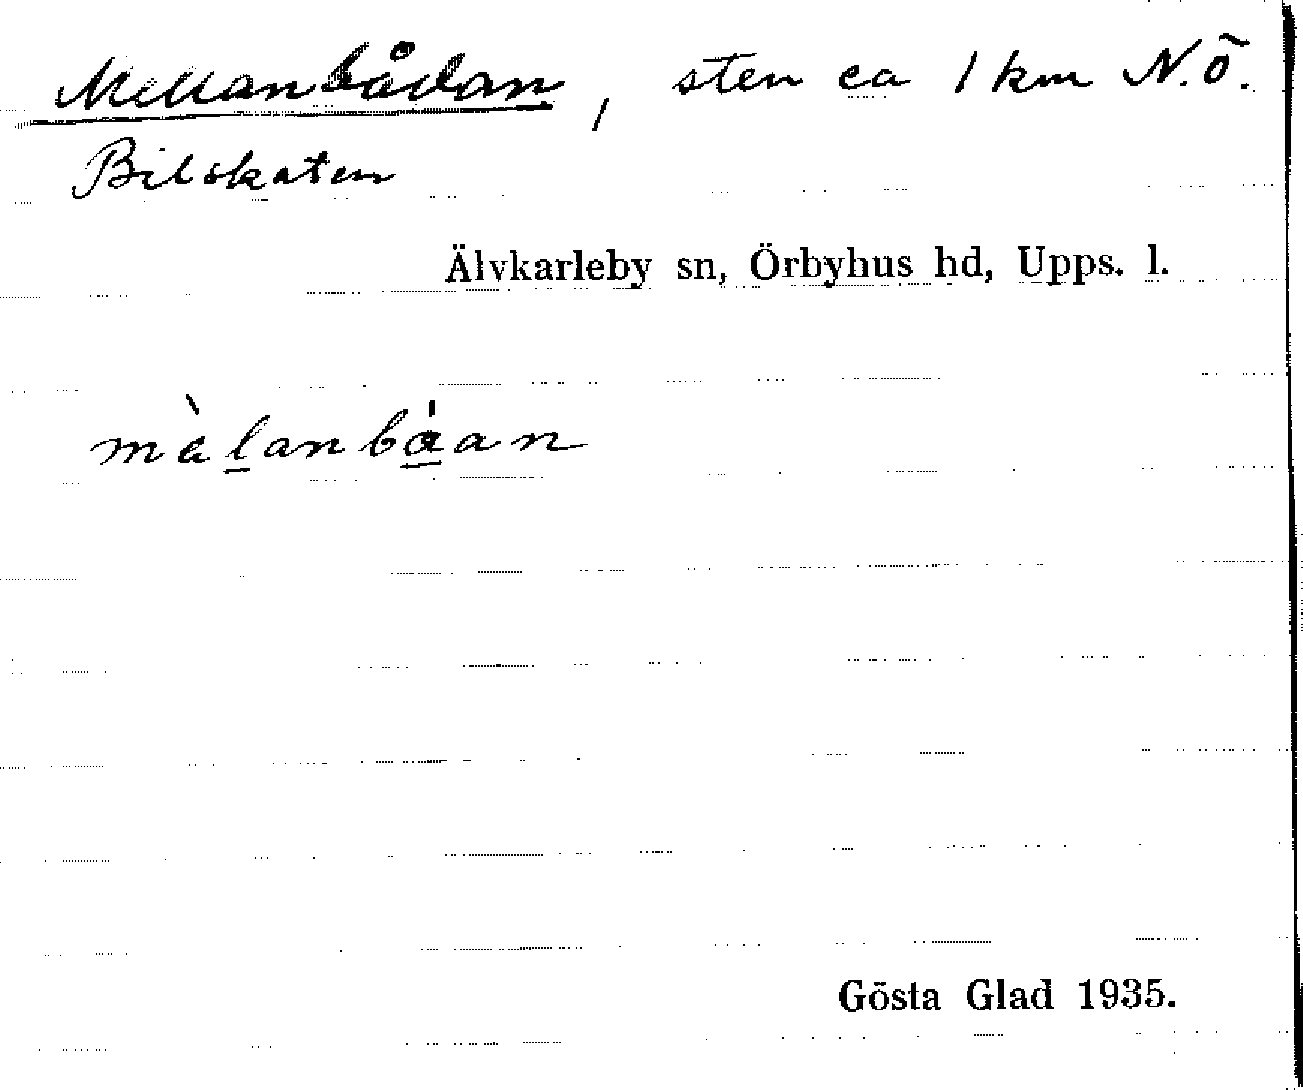 Mellanbådan, sten ca 1 km N.Ö.
Bilskaten
Älvkarleby sn, Örbyhus hd, Upps. l.
mèlanbáan
Gösta Glad 1935.